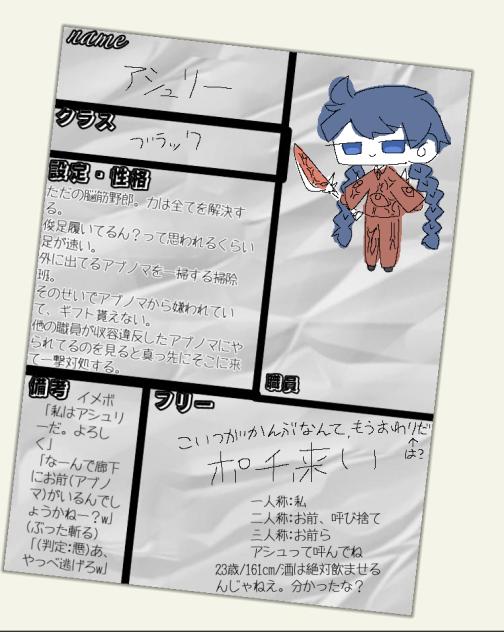 name
アシュリー
クラス
ブラック
設定・性格
ただの脳筋野郎。力は全てを解決す
る。
俊足履いてるん？って思われるくらい
足が速い。
外に出てるアブノマを一掃する掃除
班。
そのせいでアブノマから嫌われてい
て、ギフト貰えない。
他の職員が収容違反したアブノマにや
られてるのを見ると真っ先にそこに来
て一撃対処する。
職員
備考
イメボ
「私はアシュリ
ーだ。よろし
く」
「なーんで廊下
にお前(アブノ
マ)がいるんでし
ょうかねー？w」
(ぶった斬る)
「(判定:悪)あ、
やっべ逃げろw」
フリー
こいつがかんぶなんて、もうおわりだ
↑
は?
ポチ来い
一人称:私
二人称:お前、呼び捨て
三人称:お前ら
アシュって呼んでね
23歳/161cm/酒は絶対飲ませる
んじゃねえ。分かったな？